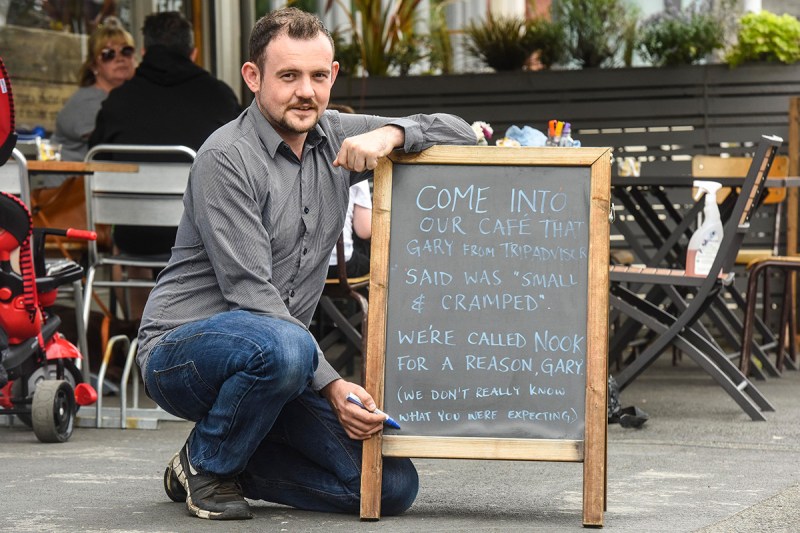 COME INTO
OUR CAFÉ THAT
GARY FROM TRIPADVISOR
SAID WAS "SMALL
& CRAMPED".
WE'RE CALLED NOOK
FOR A REASON, GARY
(WE DON'T REALLY KNOW
WHAT YOU WERE EXPECTING)